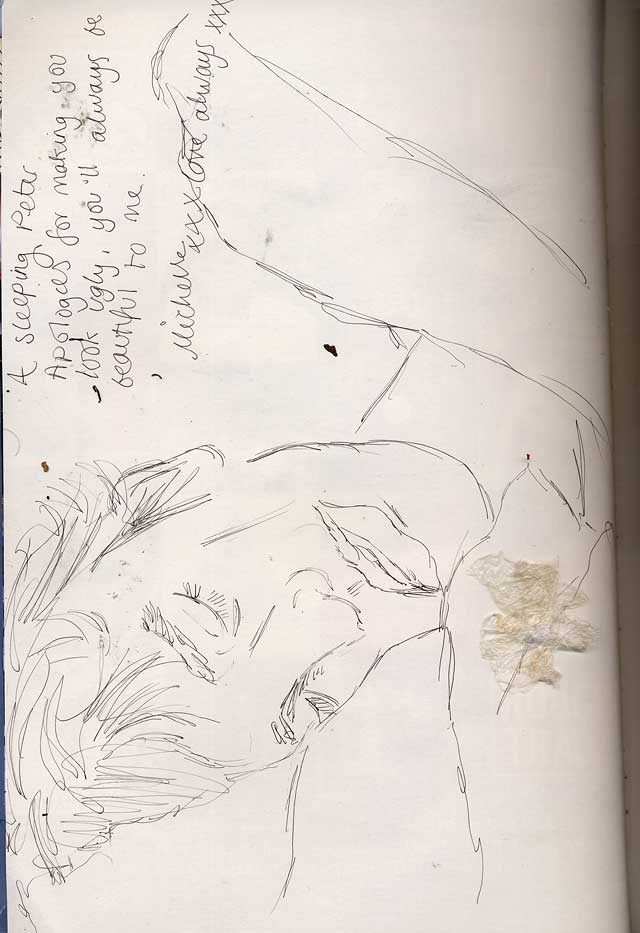 A sleeping Peter
Apologies for making you
look ugly, you'll always be
beautiful to me.
Michelle
xxx love always xxx